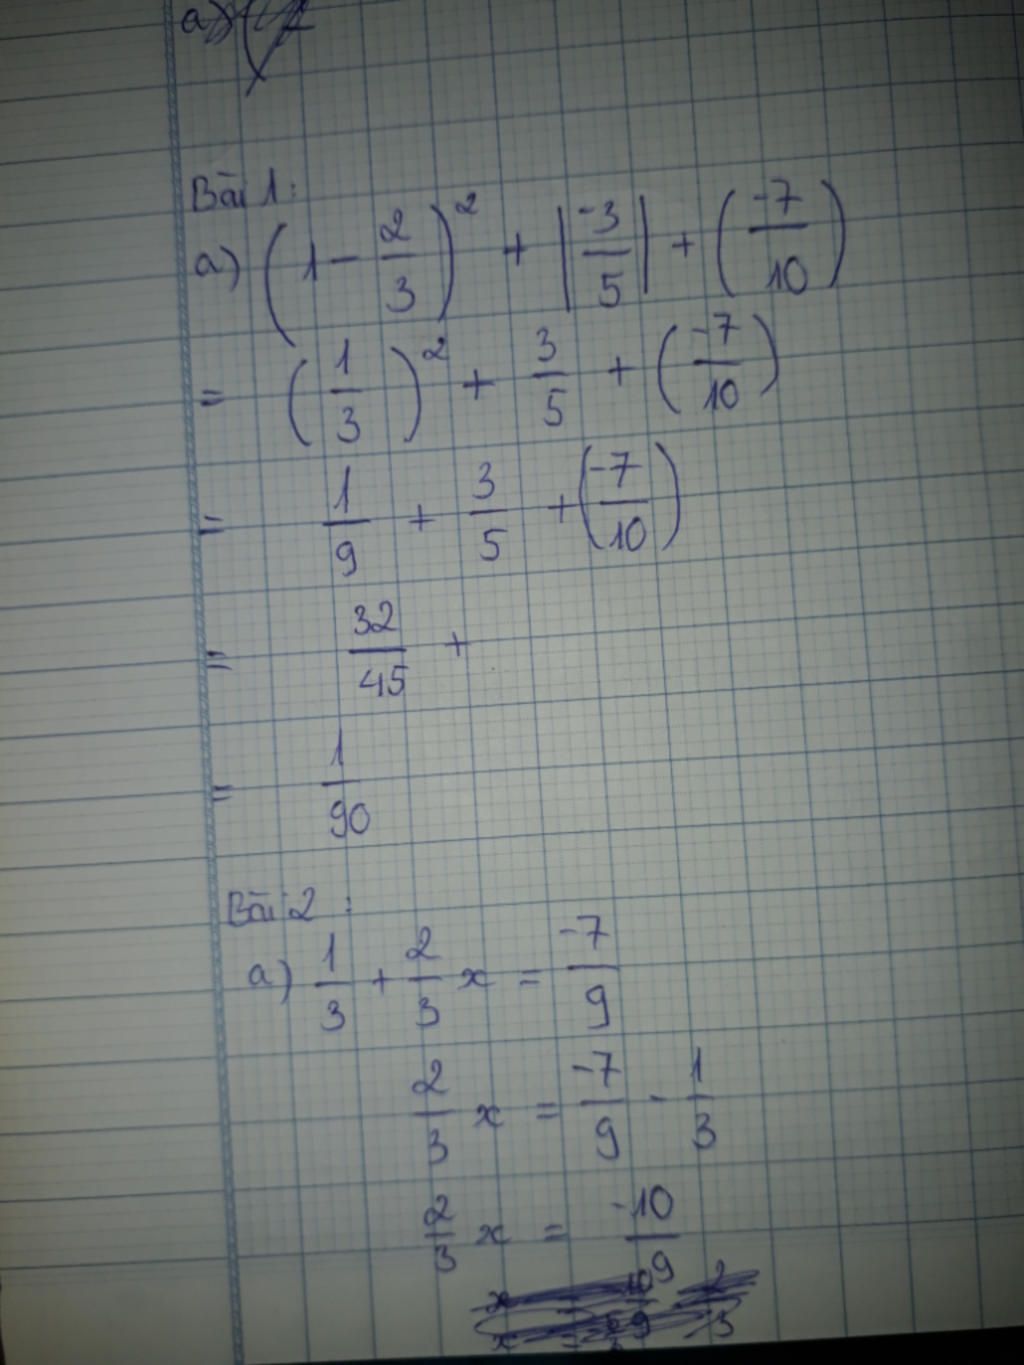 a)
Bài 1:
a) (1 - 2/3)² + |-3/5| + (-7/10)
= (1/3)² + 3/5 + (-7/10)
= 1/9 + 3/5 + (-7/10)
= 32/45 +
= 1/90
Bài 2:
a) 1/3 + 2/3 x = -7/9
2/3 x = -7/9 - 1/3
2/3 x = -10/9